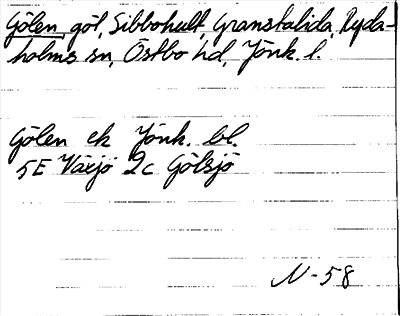 Gölen, göl, Sibbohult, Granstalida, Ryda-
holms sn, Östbo hd, Jönk. l.
Gölen ek Jönk. bl.
5E Växjö 2c Gölsjö
N-58